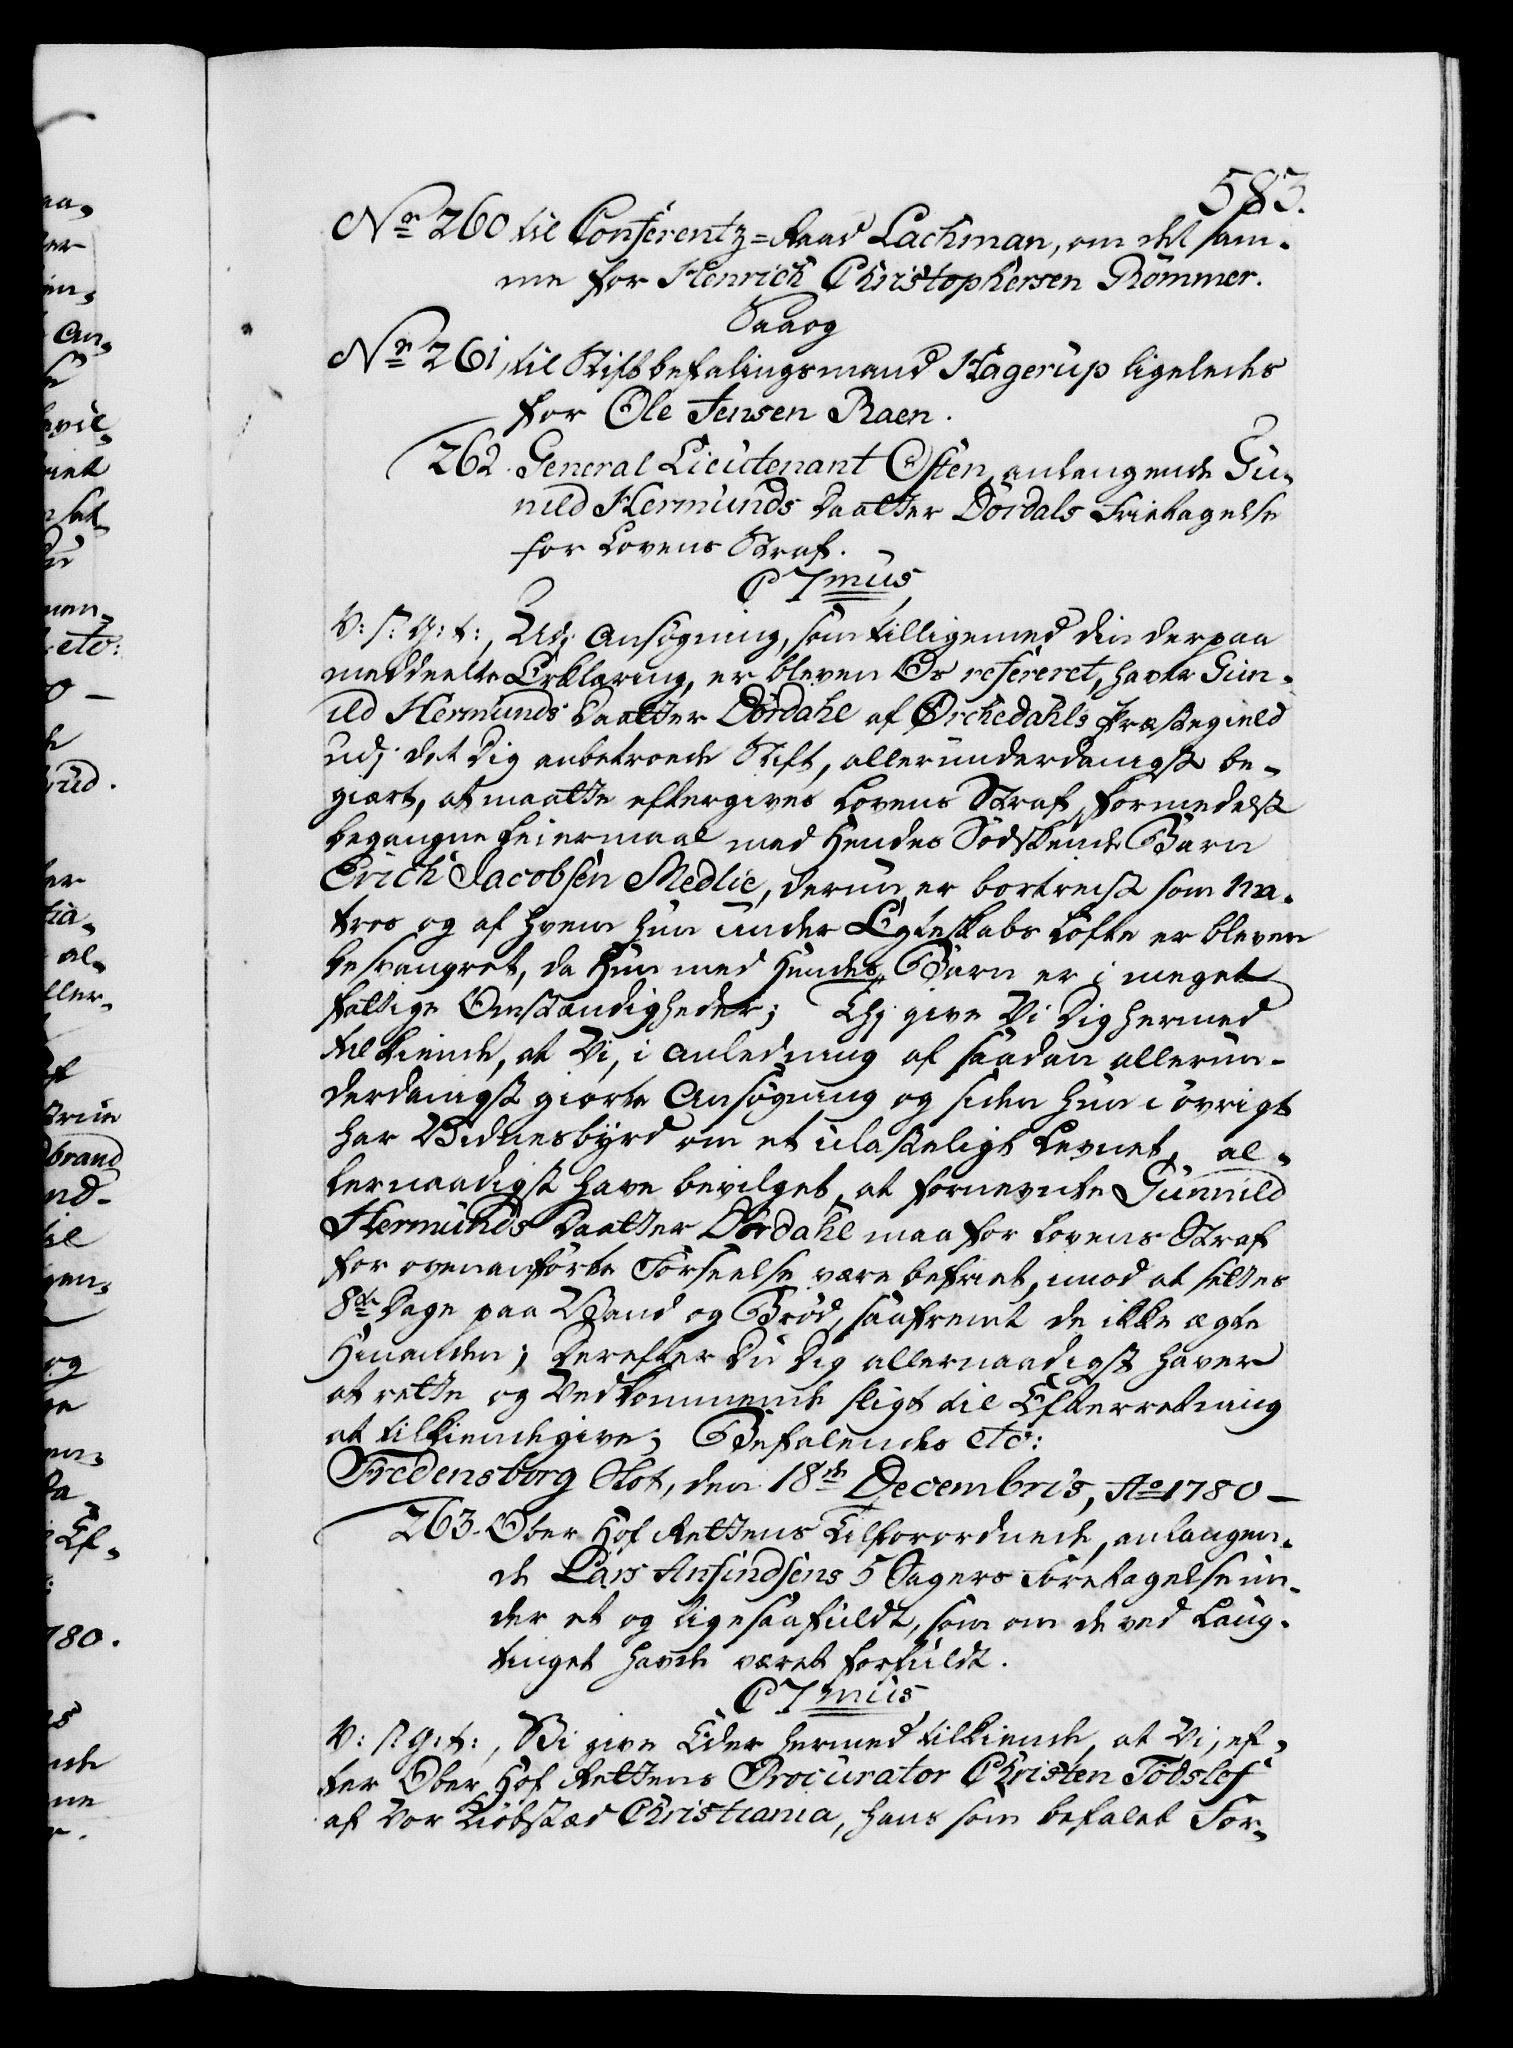 583.
No 260 til Conferentz=Raad Lachman, om det sam-
me for Henrich Christophersen Rømmer.
Saaog
No 261, til Stiftbefalingsmand Hagerup ligeledes
for Ole Jensen Raen.
262. General Lieutenant Osten, anlangende Gu-
nild Hermunds Daatter Dørdals Frietagelse
for Lovens Straf.
C 7mus
V: S: G: T:, Udj Ansøgning, som tilligemed din derpaa
meddeelte Erklæring, er bleven Os refereret, haver Gun-
ild Hermunds Daatter Dørdahl af Ørchedahls Præstegield
udj det Dig anbetroede Stift, allerunderdanigst be-
giært, at maatte eftergives Lovens Straf, formedelst
begangne Leiermaal med Hendes Södskende Barn
Erich Jacobsen Medlie, der nu er bortreist som Ma-
tros og af hvem hun under Egteskabs Löfte er bleven
besvangret, da Hun med Hendes Barn er i meget
fattige Omstændigheder; Thj give Vi Dig hermed
tilkiende, at Vi, i Anledning af saadan allerun-
derdanigst giorte Ansøgning og siden hun i øvrigt
har Vidnesbyrd om et ulasteligt Levnet, al-
lernaadigst have bevilget, at fornevnte Gunnild
Hermunds Daatter Dørdahl maa for Lovens Straf
for ovenanførte Forseelse være befriet, imod at settes
8te Dage paa Vand og Brød, saafremt de ikke ægte
Hinanden; Derefter Du Dig allernaadigst haver
at rette og Vedkommende sligt til Efterretning
at tilkiendegive; Befalendes etc:
Fredensborg Slot, den 18de Decembris, Ao 1780 —
263. Ober Hof Rettens Tilforordnede, anlangen-
de Lars Ansindsens 5 Sagers Foretagelse un-
der et og ligesaafuldt, som om de ved Laug-
tinget havde været forfuldt.
C 7mus
V: S: G: T:, Vi give Eder hermed tilkiende, at Vi, ef-
ter Ober Hof Rettens Procurator Christen Todslef
af Vor Kiøbstæd Christiania, hans som befalet For-